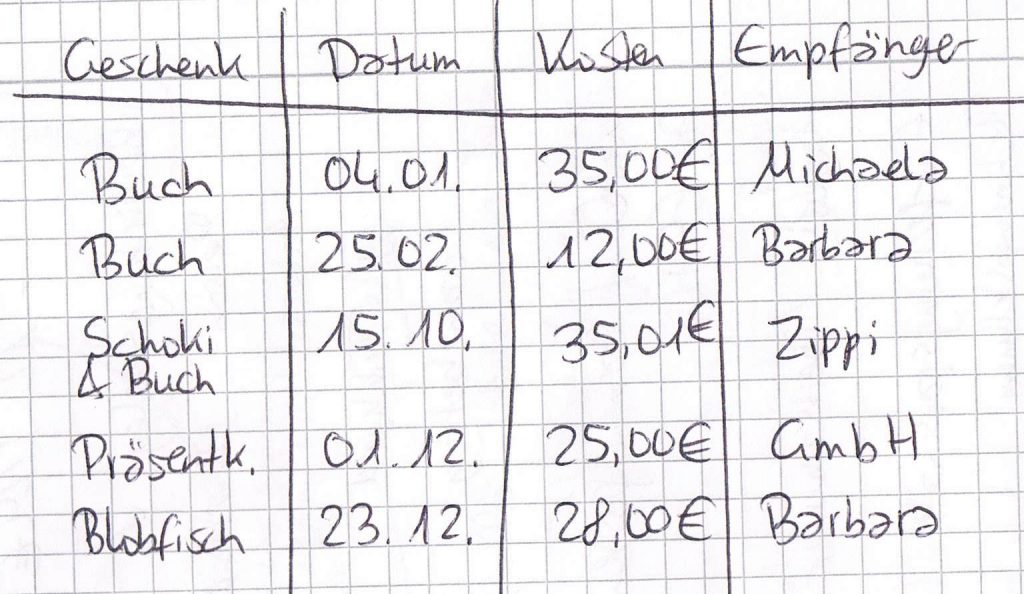 Geschenk Datum Kosten Empfänger
Buch 04.01. 35,00€ Michaela
Buch 25.02. 12,00€ Barbara
Schoki 15.10. 35,01€ Zippi
& Buch
Präsentk. 01.12. 25,00€ GmbH
Blobfisch 23.12. 28,00€ Barbara